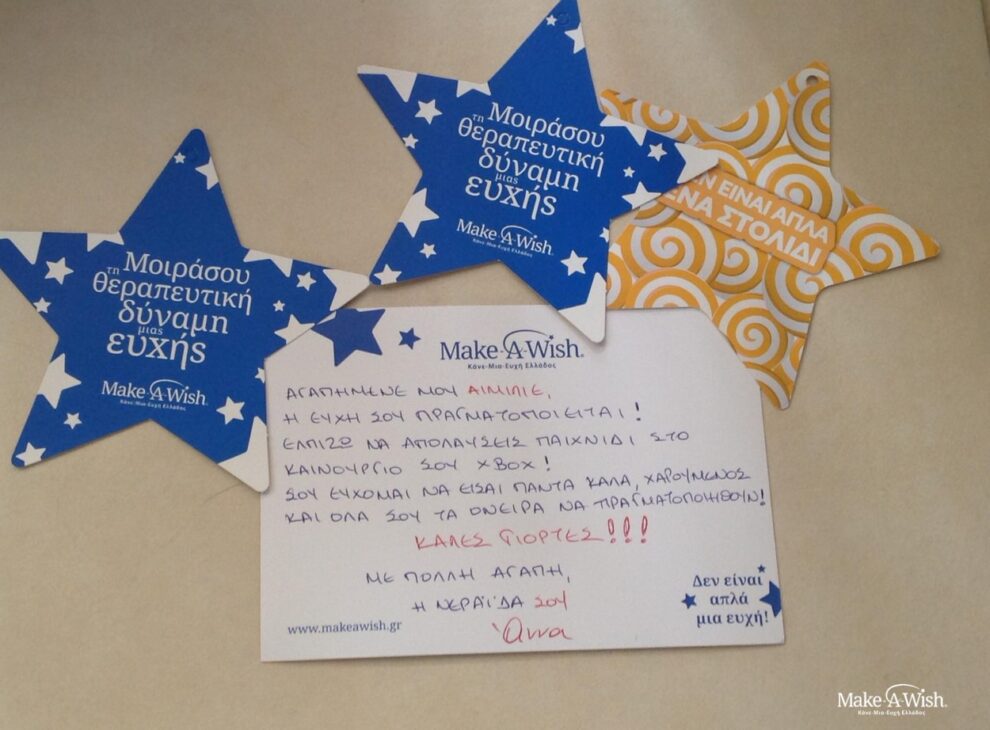 Μοιράσου
τη
θεραπευτική
δύναμη
μιας
ευχής
Make-A-Wish®
Κάνε-Μια-Ευχή Ελλάδος
Μοιράσου
τη
θεραπευτική
δύναμη
μιας
ευχής
Make-A-Wish®
Κάνε-Μια-Ευχή Ελλάδος
ΕΙΝΑΙ ΑΠΛΑ
ΕΝΑ ΣΤΟΛΙΔΙ
Make-A-Wish®
Κάνε-Μια-Ευχή Ελλάδος
ΑΓΑΠΗΜΕΝΕ ΜΟΥ ΑΙΜΙΛΙΕ,
Η ΕΥΧΗ ΣΟΥ ΠΡΑΓΜΑΤΟΠΟΙΕΙΤΑΙ!
ΕΛΠΙΖΩ ΝΑ ΑΠΟΛΑΥΣΕΙΣ ΠΑΙΧΝΙΔΙ ΣΤΟ
ΚΑΙΝΟΥΡΓΙΟ ΣΟΥ XBOX!
ΣΟΥ ΕΥΧΟΜΑΙ ΝΑ ΕΙΣΑΙ ΠΑΝΤΑ ΚΑΛΑ, ΧΑΡΟΥΜΕΝΟΣ
ΚΑΙ ΟΛΑ ΣΟΥ ΤΑ ΟΝΕΙΡΑ ΝΑ ΠΡΑΓΜΑΤΟΠΟΙΗΘΟΥΝ!
ΚΑΛΕΣ ΓΙΟΡΤΕΣ!!!
ΜΕ ΠΟΛΛΗ ΑΓΑΠΗ,
Η ΝΕΡΑΪΔΑ ΣΟΥ
Άννα
www.makeawish.gr
Δεν είναι
απλά
μια ευχή!
Make-A-Wish®
Κάνε-Μια-Ευχή Ελλάδος